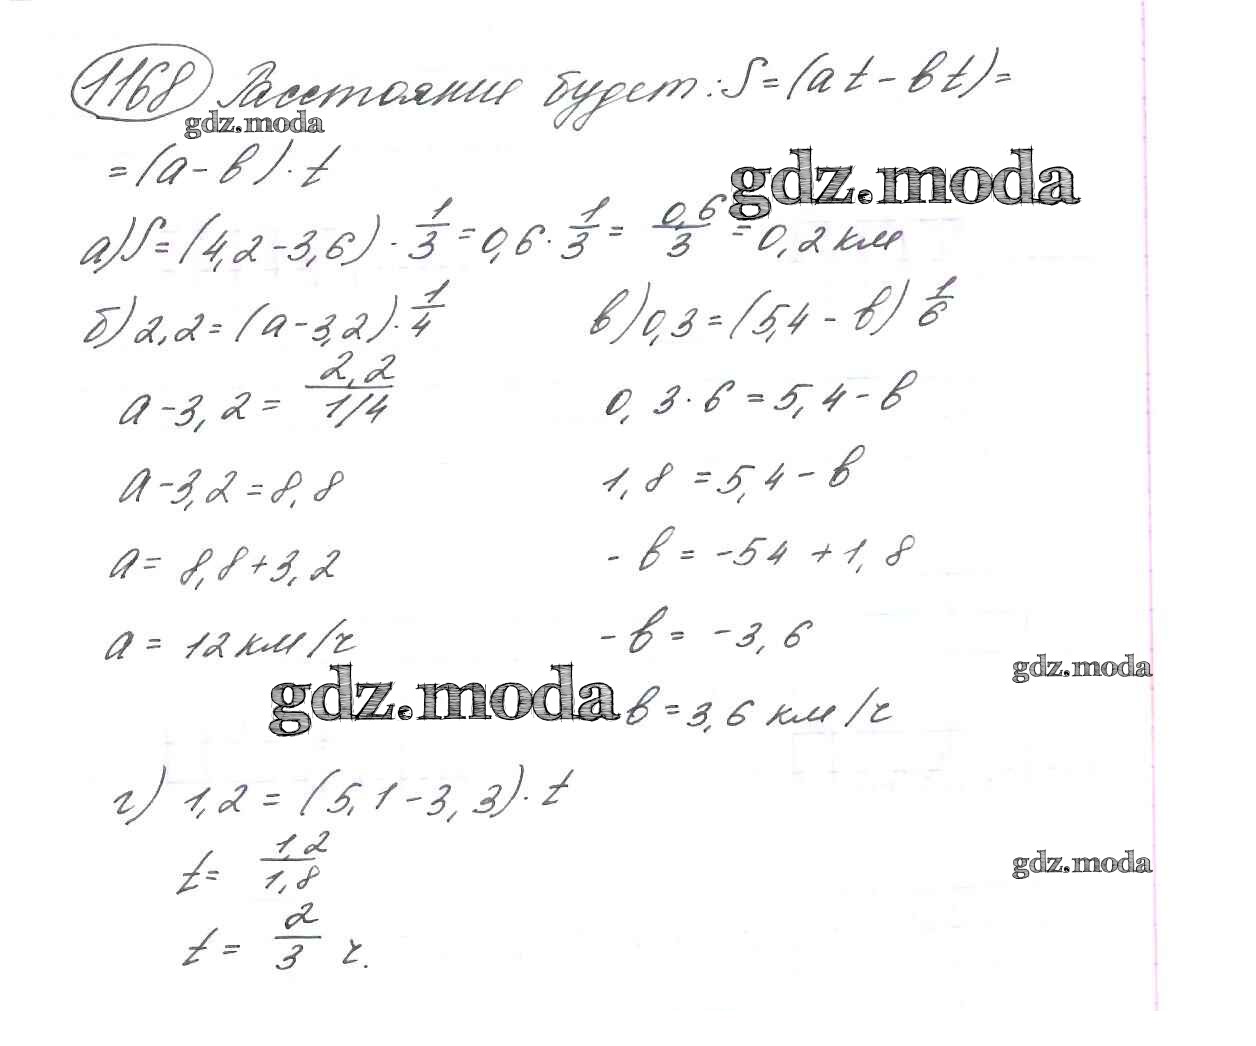 1168 Расстояние будет: S = (at - вt) =
gdz.moda
= (а - в) · t
gdz.moda
а) S = (4,2 - 3,6) · 1/3 = 0,6 · 1/3 = 0,6/3 = 0,2 км
б) 2,2 = (а - 3,2) · 1/4
а - 3,2 = 2,2 / 1/4
а - 3,2 = 8,8
а = 8,8 + 3,2
а = 12 км/ч
в) 0,3 = (5,4 - в) 1/6
0,3 · 6 = 5,4 - в
1,8 = 5,4 - в
- в = -54 + 1,8
- в = -3,6
в = 3,6 км/ч
gdz.moda
gdz.moda
г) 1,2 = (5,1 - 3,3) · t
t = 1,2/1,8
t = 2/3 ч.
gdz.moda